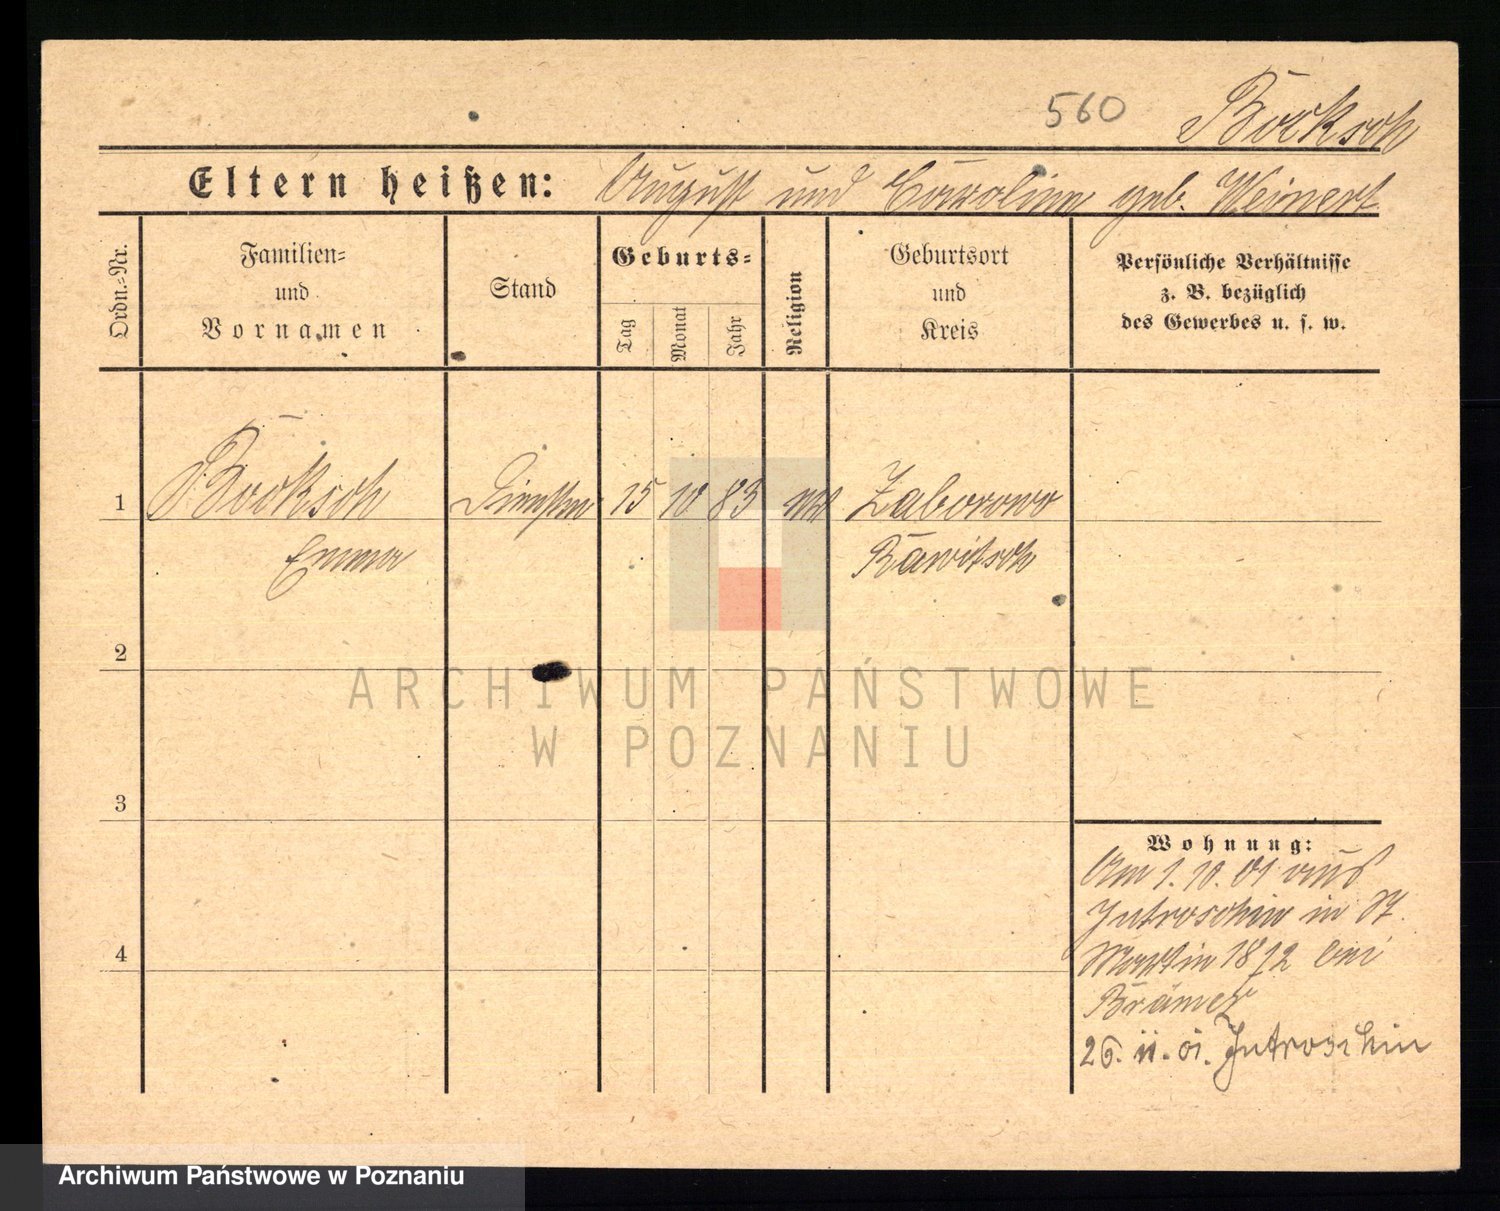 560 Böcksch
Eltern heißen: August und Caroline geb. Weinert
Ordn.=Nr.
Familien=
und
Vornamen
Stand
Geburts=
Tag
Monat
Jahr
Religion
Geburtsort
und
Kreis
Persönliche Verhältnisse
z. B. bezüglich
des Gewerbes u. s. w.
1 Böcksch 15 10 83 Zaborowo
Emma Rawitsch
2
3
4
Wohnung:
Am 1. 10. 01 aus
Jutroschin in St.
Martin 18 12 bei
Brämer
26. 11. 01. Jutroschin
ARCHIWUM PAŃSTWOWE
W POZNANIU
Archiwum Państwowe w Poznaniu